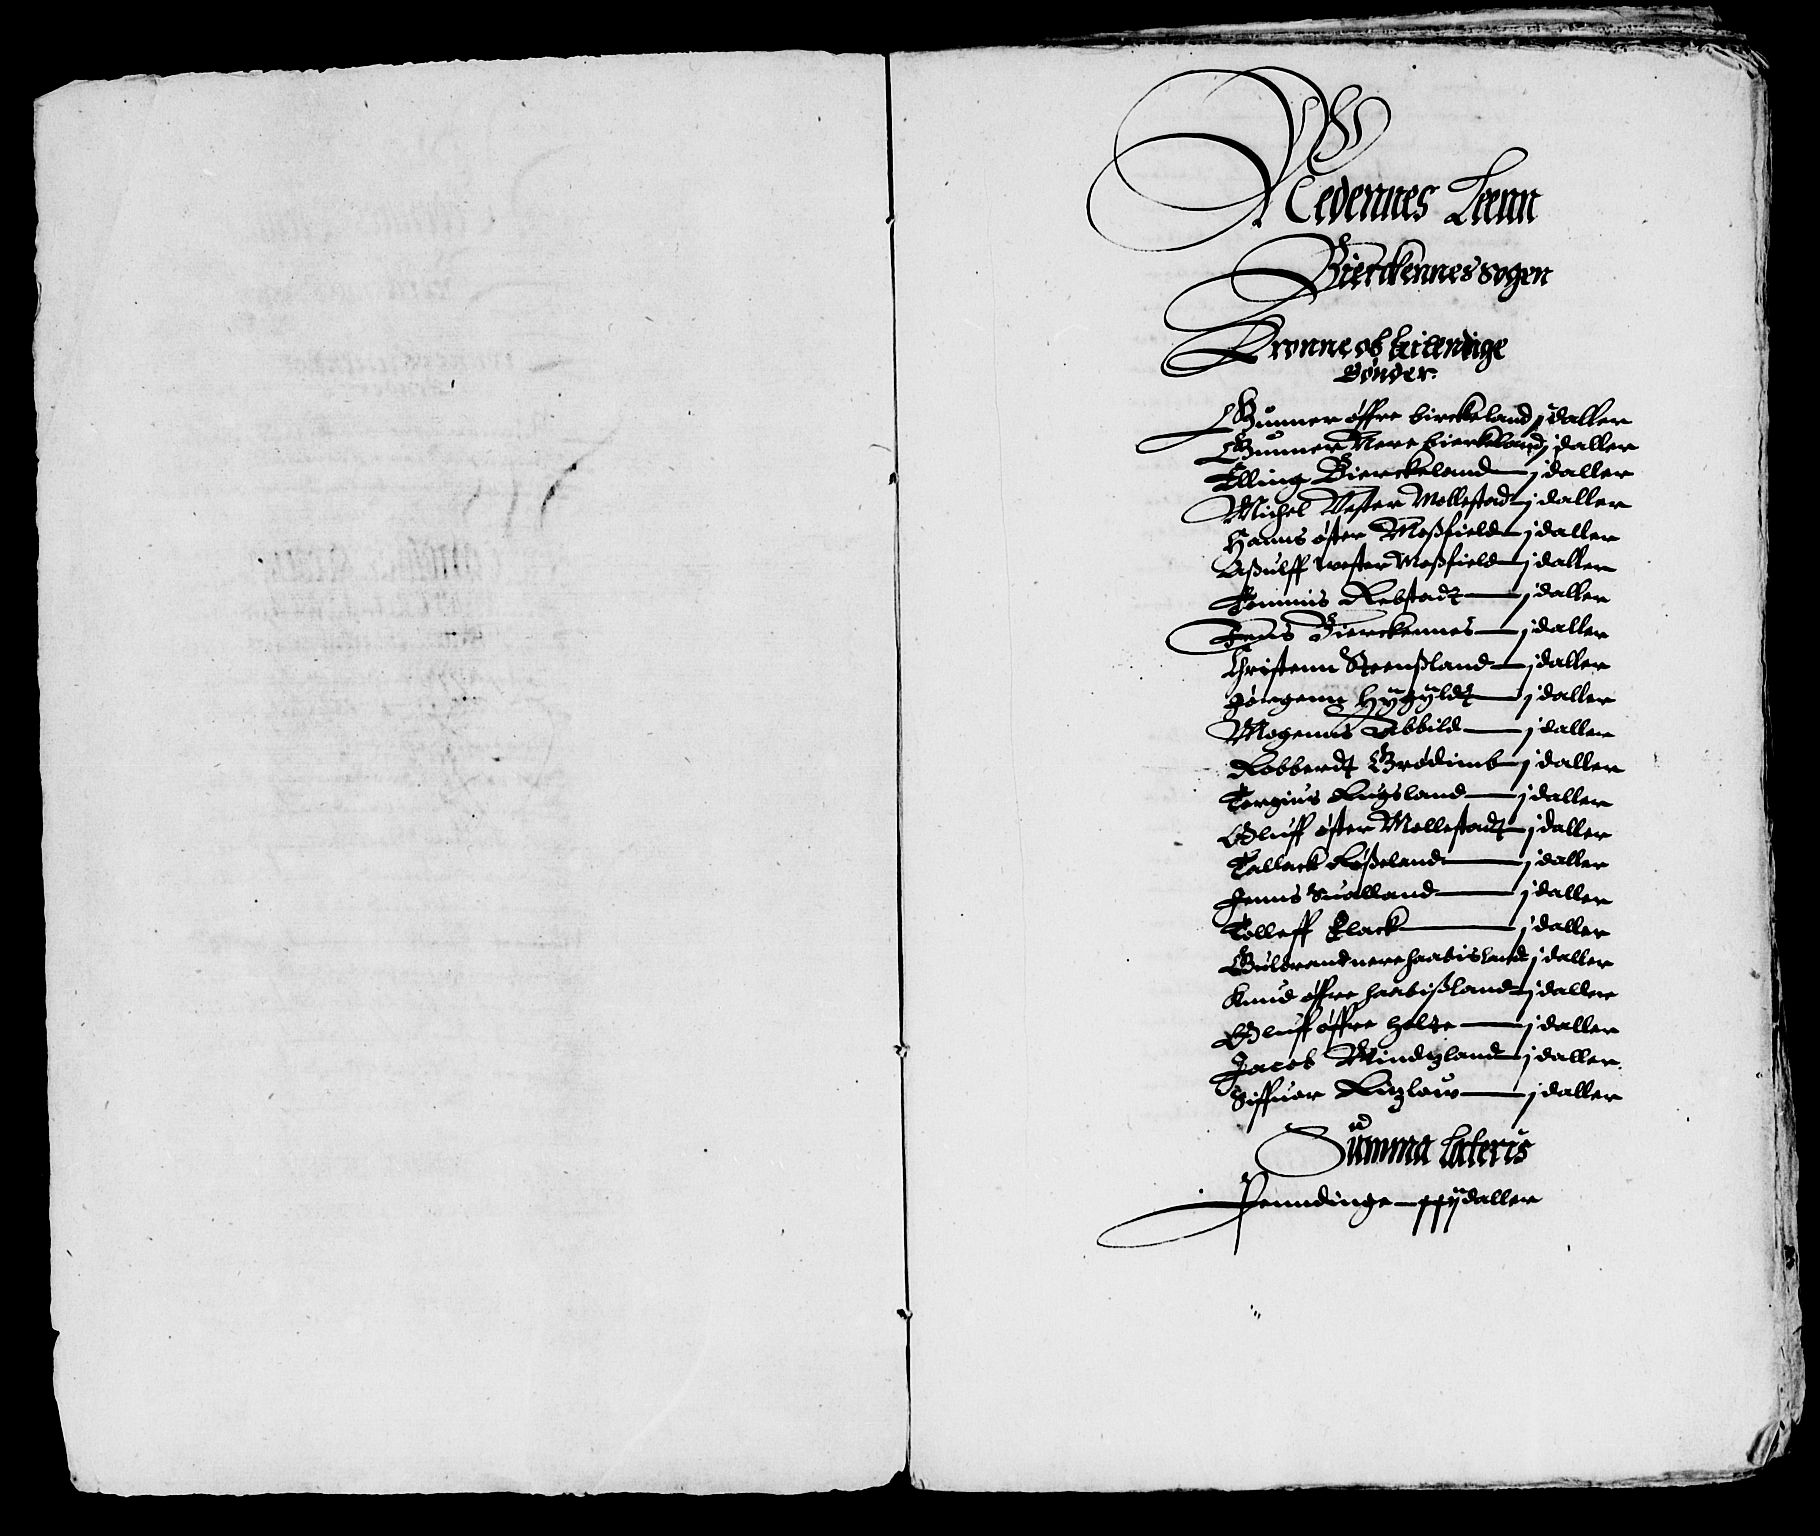 Nedennes Leenn
Bierckennes sogen
Kronne och leilendige
bønder.
Gunner øffre birckeland j daller
Gunner Nere bierkeland j daller
Elling Bierckeland j daller
Michel Vester Mollestad j daller
Hanns øster Moßfield j daller
Aßulff wester Moßfield j daller
Tommis Rebstadt j daller
Jens Bierckennes j daller
Christenn Steenßland j daller
Jørgenn Hygyldt j daller
Mogenns Abbild j daller
Robberdt j daller
Tergius Rugsland j daller
Oluff øster Mollestadt j daller
Tallack Røßeland j daller
Jenns Sualland j daller
Tolleff Flack j daller
Gulbrand nere haabisland j daller
Knud øffre haabißland j daller
Oluff øffre Holte j daller
Jacob Windtzland j daller
Siffuer j daller
Summa lateris
Penndinge xxij daller